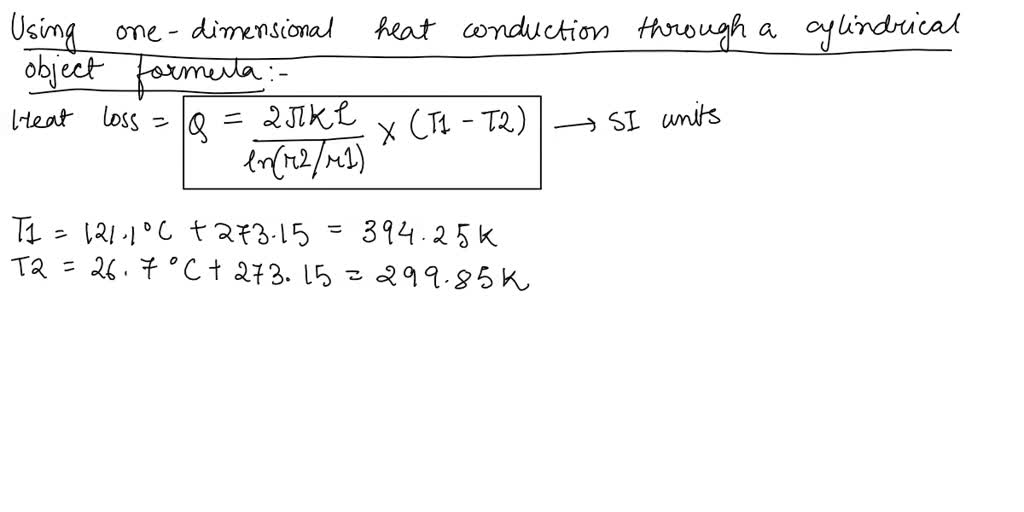 Using one-dimensional heat conduction through a cylindrical
object formula:-
Heat loss = Q = 2πKL / ln(r2/r1) × (T1 - T2) → SI units
T1 = 121.1°C + 273.15 = 394.25K
T2 = 26.7°C + 273.15 = 299.85K